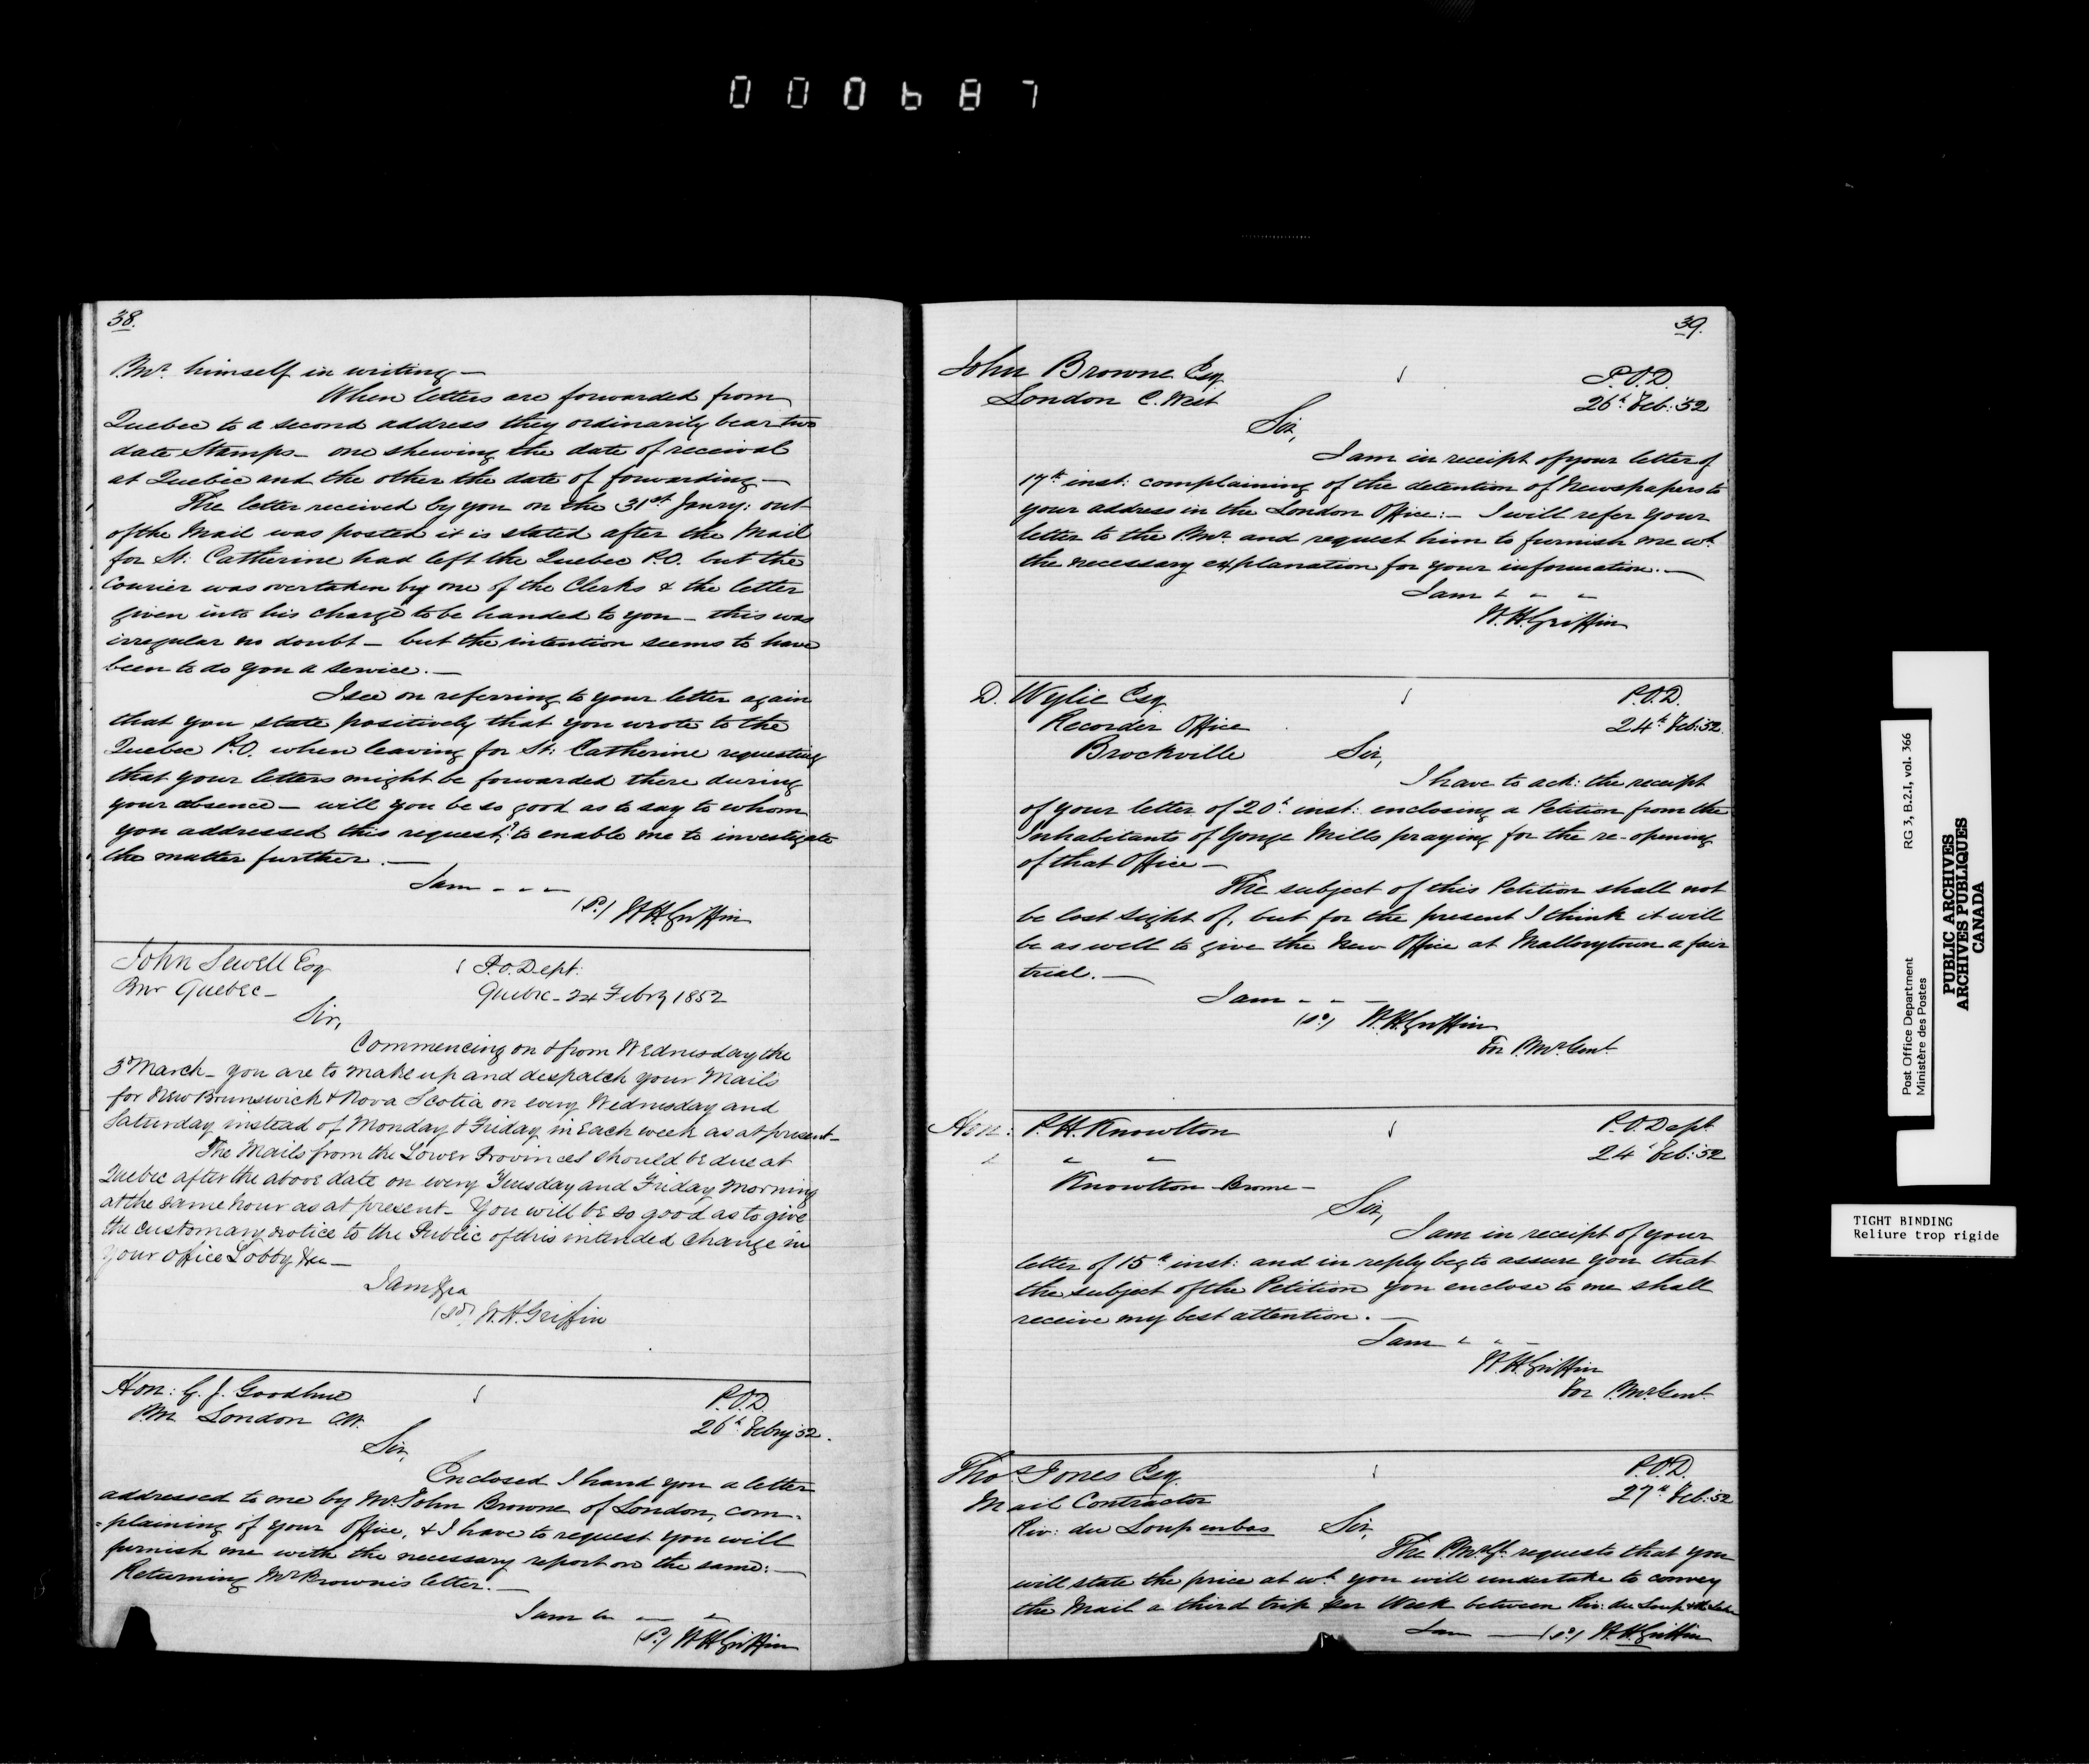 000687
38.
P.Mr. himself in writing —
When letters are forwarded from
Quebec to a second address they ordinarily bear two
date Stamps — one shewing the date of receival
at Quebec and the other the date of forwarding —
The letter received by you on the 31st Janry: out
of the Mail was posted it is stated after the Mail
for St: Catherine had left the Quebec P.O. but the
Courier was overtaken by one of the Clerks & the letter
given into his charge to be handed to you — this was
irregular no doubt — but the intention seems to have
been to do you a service. —
I see on referring to your letter again
that you state positively that you wrote to the
Quebec P.O. when leaving for St: Catherine requesting
that your letters might be forwarded there during
your absence — will you be so good as to say to whom
you addressed this request? to enable me to investigate
the matter further. —
I am - - -
(Sd) W.H. Griffin
John Sewell Esq
P.O. Dept:
PMr Quebec —
Quebec - 24 Febry 1852
Sir,
Commencing on & from Wednesday the
3d March — you are to make up and despatch your Mails
for New Brunswick & Nova Scotia on every Wednesday and
Saturday instead of Monday & Friday in each week as at present —
The Mails from the Lower Provinces should be due at
Quebec after the above date on every Tuesday and Friday Morning
at the same hour as at present — You will be so good as to give
the customary notice to the Public of this intended change in
your Office Lobby &c —
I am &ca
(Sd) W.H. Griffin
Hon: G. J. Goodhue
P.O.D.
P.M. London C.W.
26th Febry 52.
Sir,
Enclosed I hand you a letter
addressed to me by Mr. John Browne of London, com-
=plaining of your Office, & I have to request you will
furnish me with the necessary report on the same: —
Returning Mr Browne's letter. —
I am
(Sd) W.H. Griffin
39.
John Browne Esq
P.O.D.
London C. West
26th Feb: 52
Sir,
I am in receipt of your letter of
17th inst: complaining of the detention of Newspapers to
your address in the London Office: — I will refer your
letter to the P.Mr. and request him to furnish me wh.
the necessary explanation for your information. —
I am " " "
W.H. Griffin
D. Wylie Esq
P.O.D.
Recorder Office
24th Feb: 52.
Brockville
Sir,
I have to ack: the receipt
of your letter of 20th inst: enclosing a Petition from the
Inhabitants of Yonge Mills praying for the re-opening
of that Office —
The subject of this Petition shall not
be lost sight of, but for the present I think it will
be as well to give the New Office at Mallorytown a fair
trial. —
I am - - -
(Sd) W.H. Griffin
For P.Mr. Genl.
Hon: P. H. Knowlton
P.O. Dept
" " "
24th Feb: 52
Knowlton Brome —
Sir,
I am in receipt of your
letter of 15th inst: and in reply beg to assure you that
the subject of the Petition you enclose to me shall
receive my best attention. —
I am " " -
W.H. Griffin
For P.Mr. Genl.
Thos. Jones Esq
P.O.D.
Mail Contractor
27th Feb: 52
Riv: du Loup enbas
Sir,
The P.Mr. requests that you
will state the price at wh. you will undertake to convey
the Mail a third trip per Week between Riv: du Loup & the Lake
I am — (Sd) W.H. Griffin
Post Office Department
Ministère des Postes
RG 3, B.2.I, vol. 366
PUBLIC ARCHIVES
ARCHIVES PUBLIQUES
CANADA
TIGHT BINDING
Reliure trop rigide